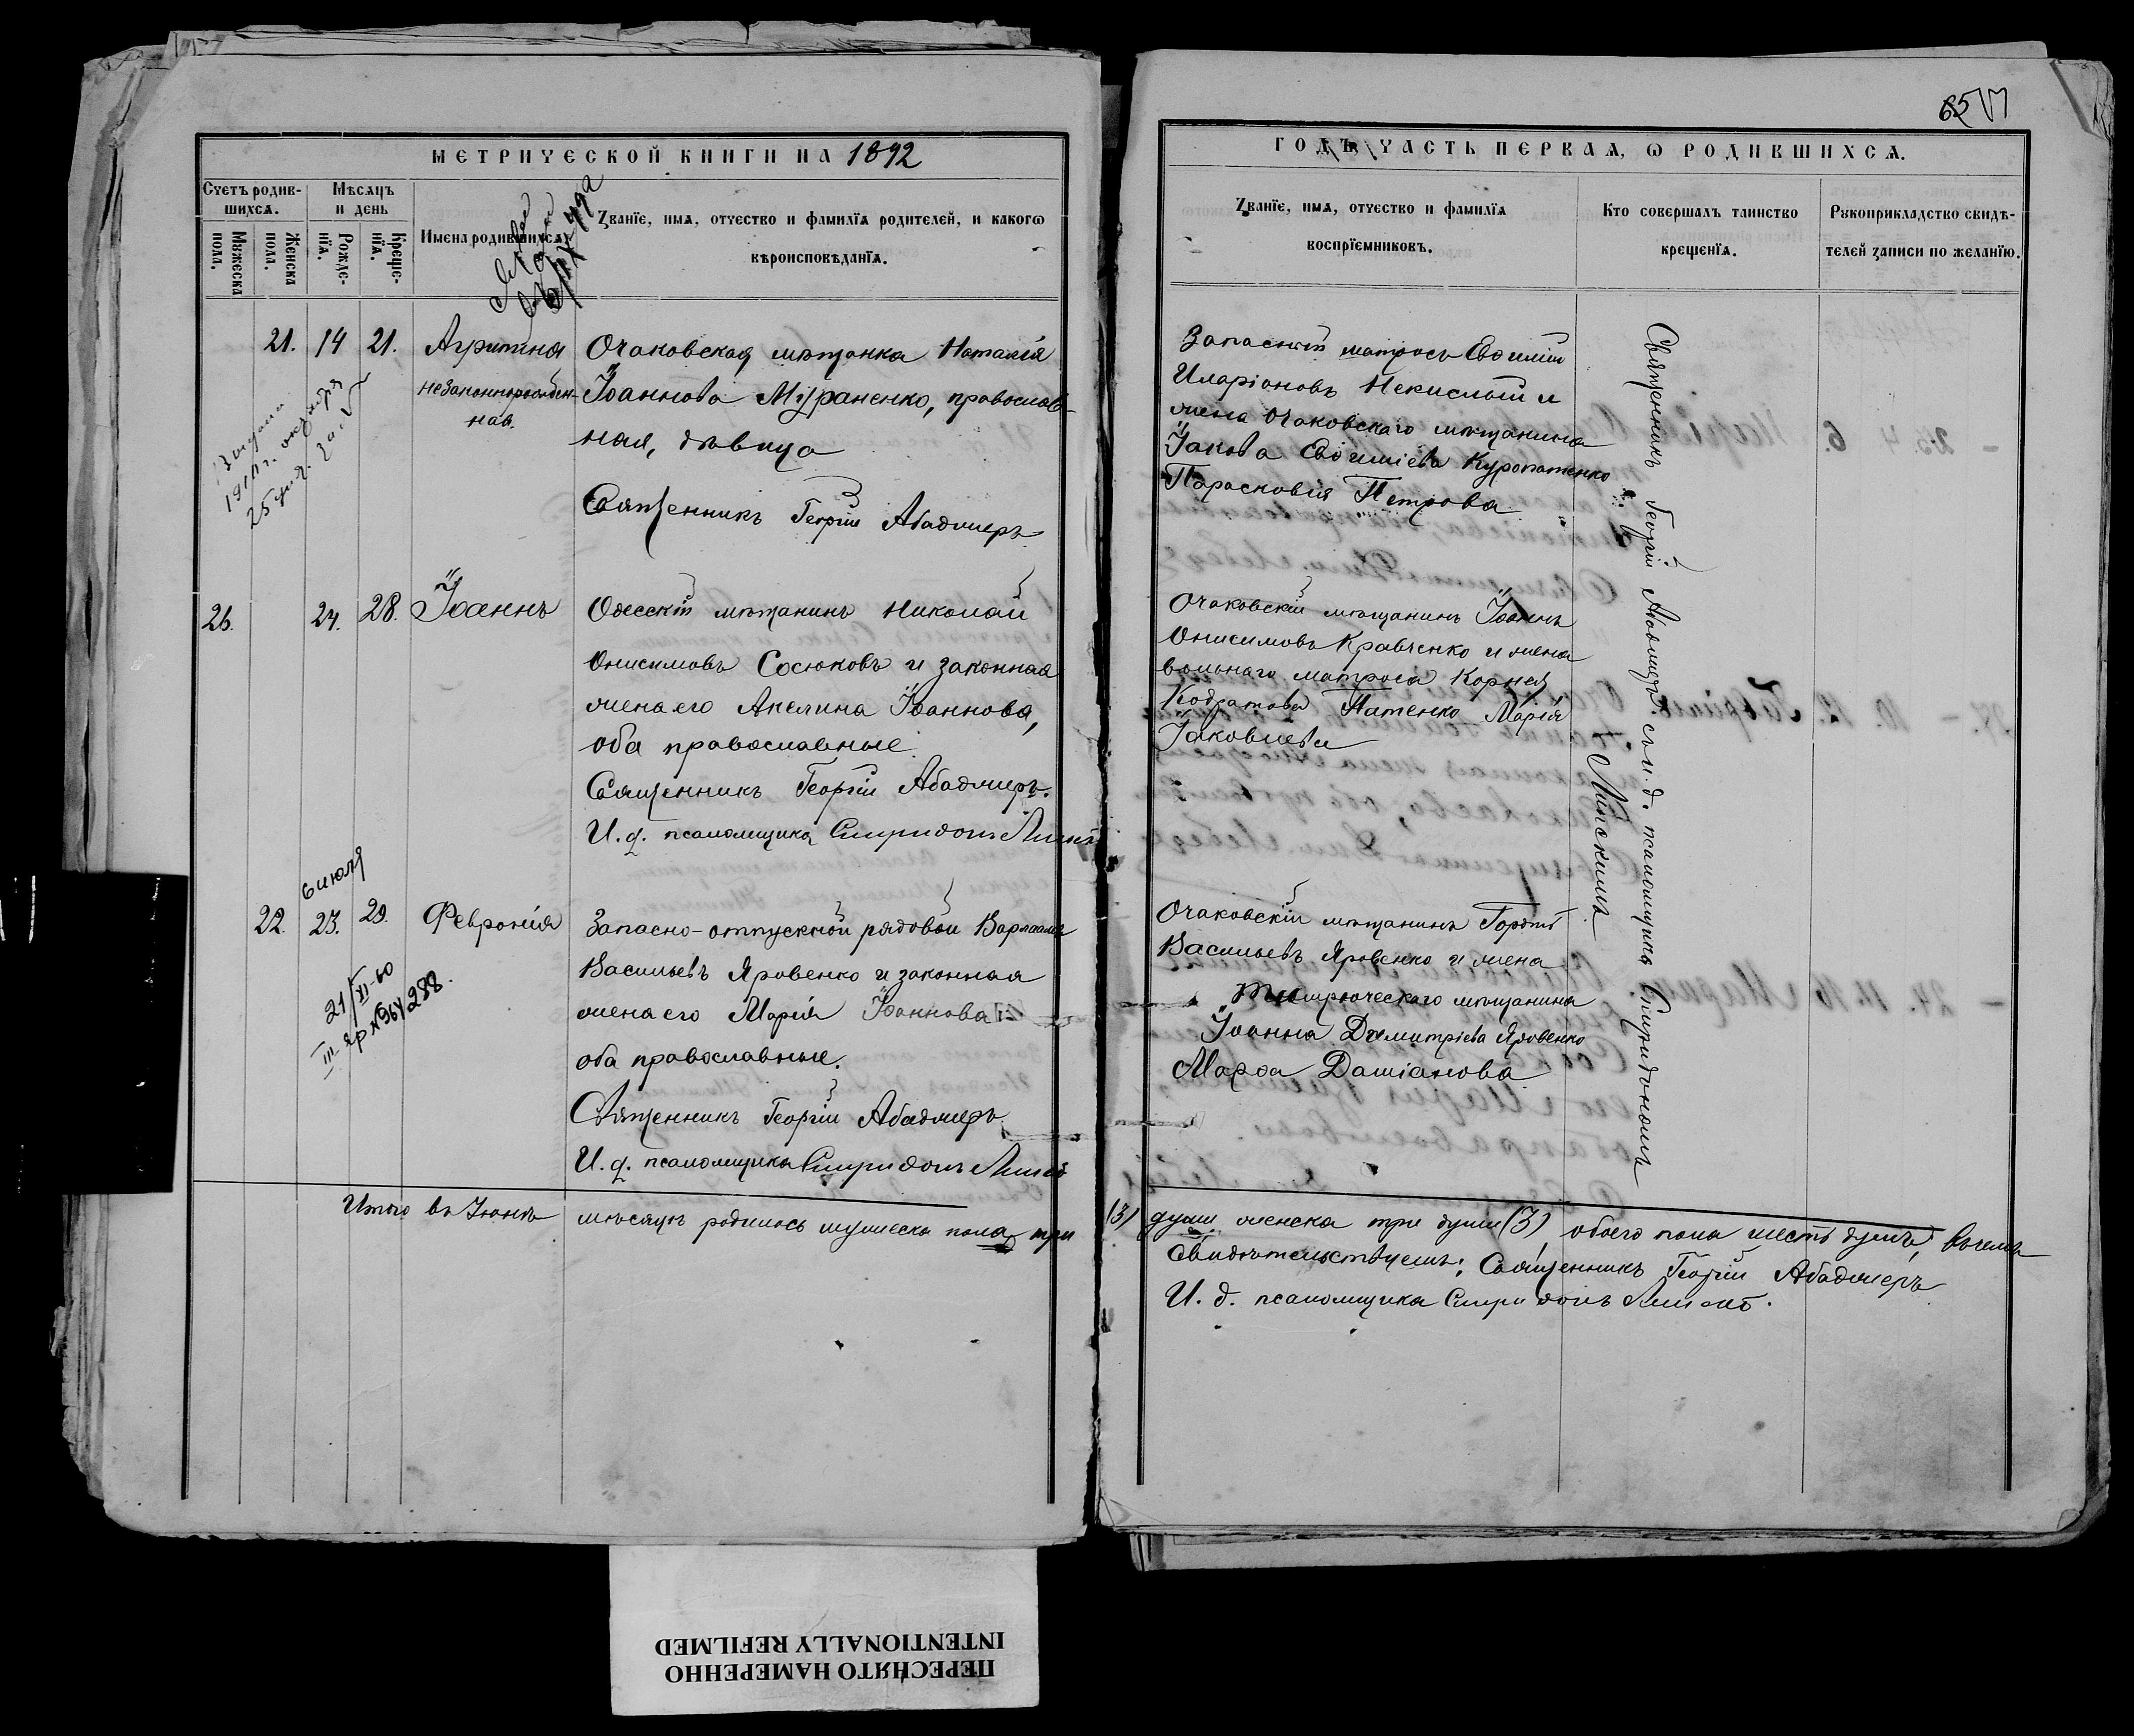 65
МЕТРИЧЕСКОЙ КНИГИ НА 1892
ГОДЪ ЧАСТЬ ПЕРВАЯ, Ѡ РОДИВШИХСЯ.
Счетъ родив-
шихся.
Мѣсяцъ
и день
Мꙋжеска
пола.
Женска
пола.
Рожде-
нїя.
Креще-
нїя.
Имена родившихся.
Званїе, имя, отчество и фамилїя родителей, и какогѡ
вѣроисповѣданїя.
Званїе, имя, отчество и фамилїя
воспрїемниковъ.
Кто совершалъ таинство
крещенїя.
Рꙋкоприкладство свидѣ-
телей записи по желанїю.
21. 14 21. Агрипина
незаконнорожден-
ная.
Очаковская мѣщанка Наталія
Іоаннова Мураненко, православ-
ная, дѣвица
Священникъ Георгій Абаджеръ
Запасный матросъ Евѳимій
Иларіоновъ Некислый и
жена Очаковскаго мѣщанина
Іакова Евѳиміева Куропатенко
Парасковія Петрова
26. 24. 28. Іоаннъ
Одесскій мѣщанинъ Николай
Онисимовъ Сосюковъ и законная
жена его Акелина Іоаннова,
оба православные
Священникъ Георгій Абаджеръ.
И. д. псаломщика Спиридонъ
Очаковскій мѣщанинъ Іоаннъ
Онисимовъ Кравченко и жена
вольнаго матроса Корнея
Кодратова Патенко Марія
Іаковлева
6 июля
22. 23. 29. Феѵронія
21/XI-60
288.
Запасно-отпускной рядовой Варлаамъ
Васильевъ Яровенко и законная
жена его Марія Іоаннова
оба православные.
Священникъ Георгій Абаджеръ
И. д. псаломщика Спиридонъ
Очаковскій мѣщанинъ Гордій
Васильевъ Яровенко и жена
мѣщанина
Іоанна Димитріева Яровенко
Марѳа Даміанова
Священникъ Георгій Абаджеръ съ и. д. псаломщика Спиридономъ
Липскимъ
Итого въ Іюнѣ мѣсяцѣ родилось мужеска пола три
(3) душ женска три души (3) обоего пола шесть душъ, въ чемъ
Свидѣтельствуемъ: Священникъ Георгій Абаджеръ
И. д. псаломщика Спиридонъ
ПЕРЕСНЯТО НАМЕРЕННО
INTENTIONALLY REFILMED